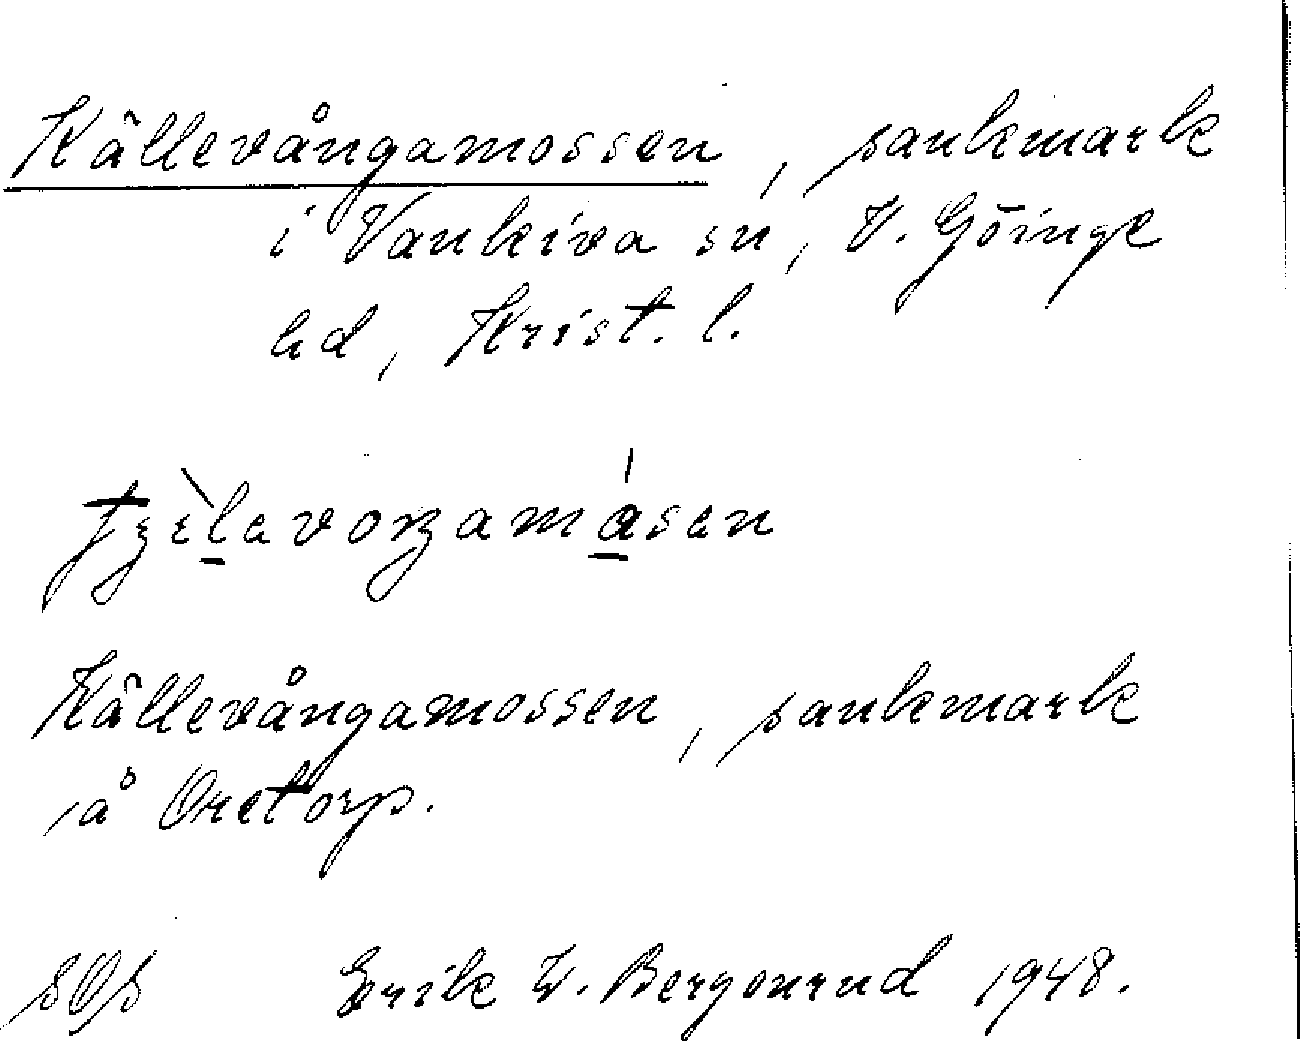 Källevångamossen, sankmark
i Vankiva sn, V. Göinge
hd, Krist. l.
Källevångamossen, sankmark
på Oretorp.
SOS Erik W. Bergenrud 1948.